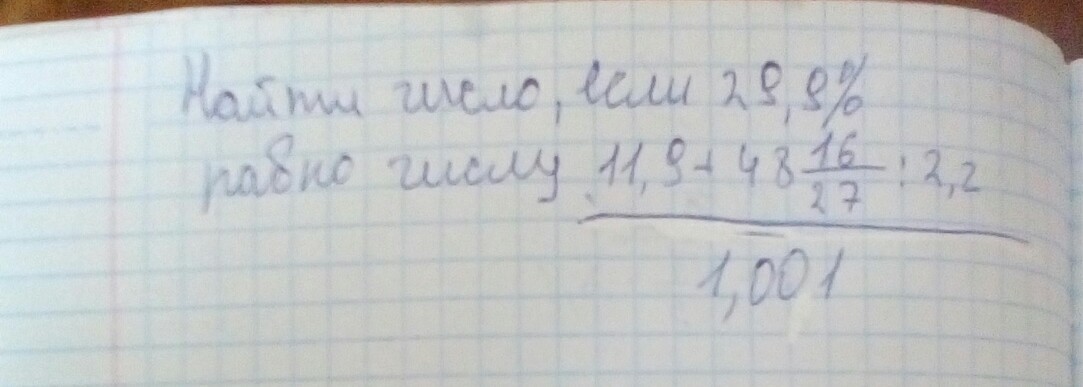 Найти число, если 29,9%
равно числу 11,9 + 48 16/27 : 2,2
1,001